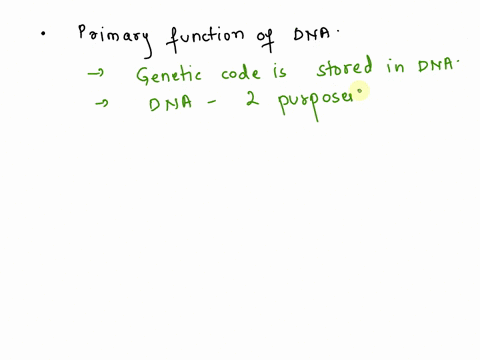 • Primary function of DNA.
→ Genetic code is stored in DNA.
→ DNA - 2 purposes